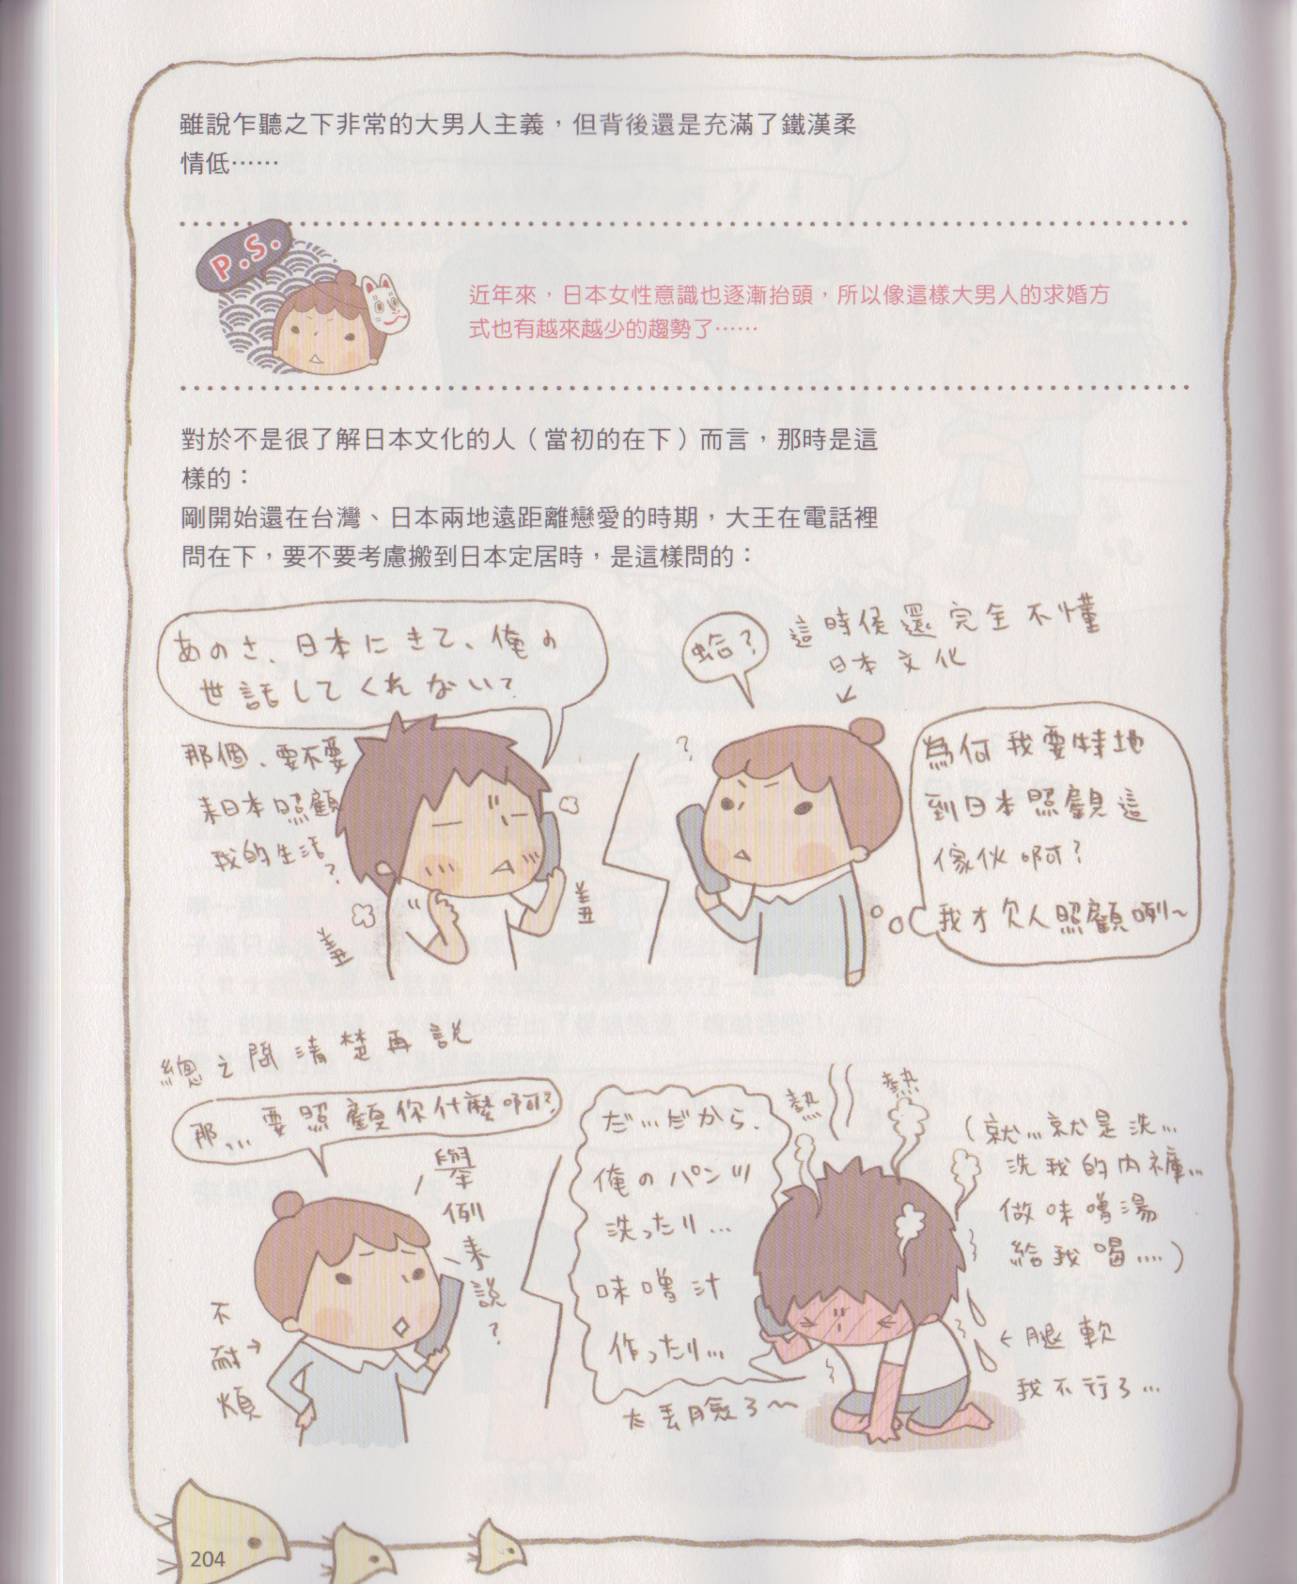 雖說乍聽之下非常的大男人主義，但背後還是充滿了鐵漢柔
情低⋯⋯
P.S.
近年來，日本女性意識也逐漸抬頭，所以像這樣大男人的求婚方
式也有越來越少的趨勢了⋯⋯
對於不是很了解日本文化的人（當初的在下）而言，那時是這
樣的：
剛開始還在台灣、日本兩地遠距離戀愛的時期，大王在電話裡
問在下，要不要考慮搬到日本定居時，是這樣問的：
あのさ、日本にきて、俺の
世話してくれない？
那個、要不要
來日本照顧
我的生活
？
羞
羞
蛤？
這時侯還完全不懂
日本文化
？
為何我要特地
到日本照顧這
傢伙啊？
我才欠人照顧咧~
總之問清楚再說
那...要照顧你什麼啊？
舉例來說？
不耐煩
だ...だから、
俺のパンツ
洗ったり...
味噌汁
作ったり...
太丟臉了~
熱
熱
（就...就是洗...
洗我的內褲...
做味噌湯
給我喝....）
腿軟
我不行了...
204